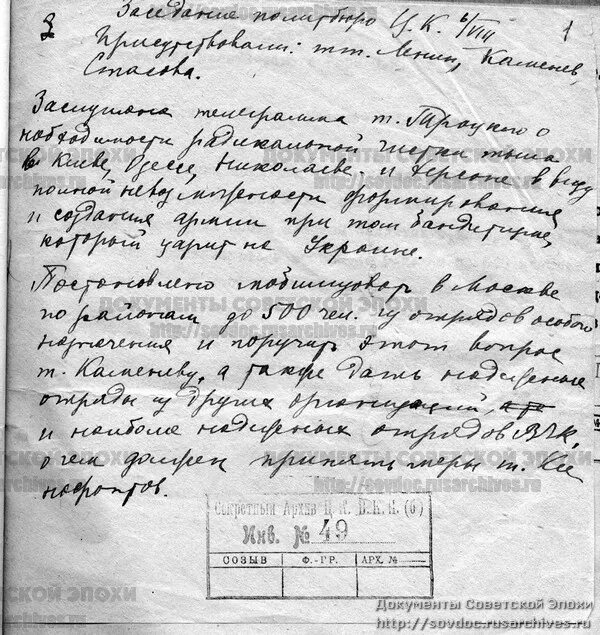 3
1
Заседание политбюро Ц.К. 6/VIII
Присутствовали: т.т. Ленин, Каменев,
Стасова.
Заслушана телеграмма т. Троцкого о
необходимости радикальной чистки тыла
в Киеве, Одессе, Николаеве и Херсоне в виду
полной невозможности формирования
и создания армии при том бандитизме,
который царит на Украине.
Постановлено мобилизовать в Москве
по районам до 500 чел. из отрядов особого
назначения и поручить этот вопрос
т. Каменеву, а также дать надежные
отряды из других организаций,
и наиболее надежных отрядов ВЧК,
о чем должен принять меры т. Ксе
нофонтов.
Секретный Архив Ц. К. В. К. П. (б)
Инв. № 49
СОЗЫВ Ф.-ГР. АРХ. №
ДОКУМЕНТЫ СОВЕТСКОЙ ЭПОХИ
http://sovdoc.rusarchives.ru
Документы Советской Эпохи
http://sovdoc.rusarchives.ru